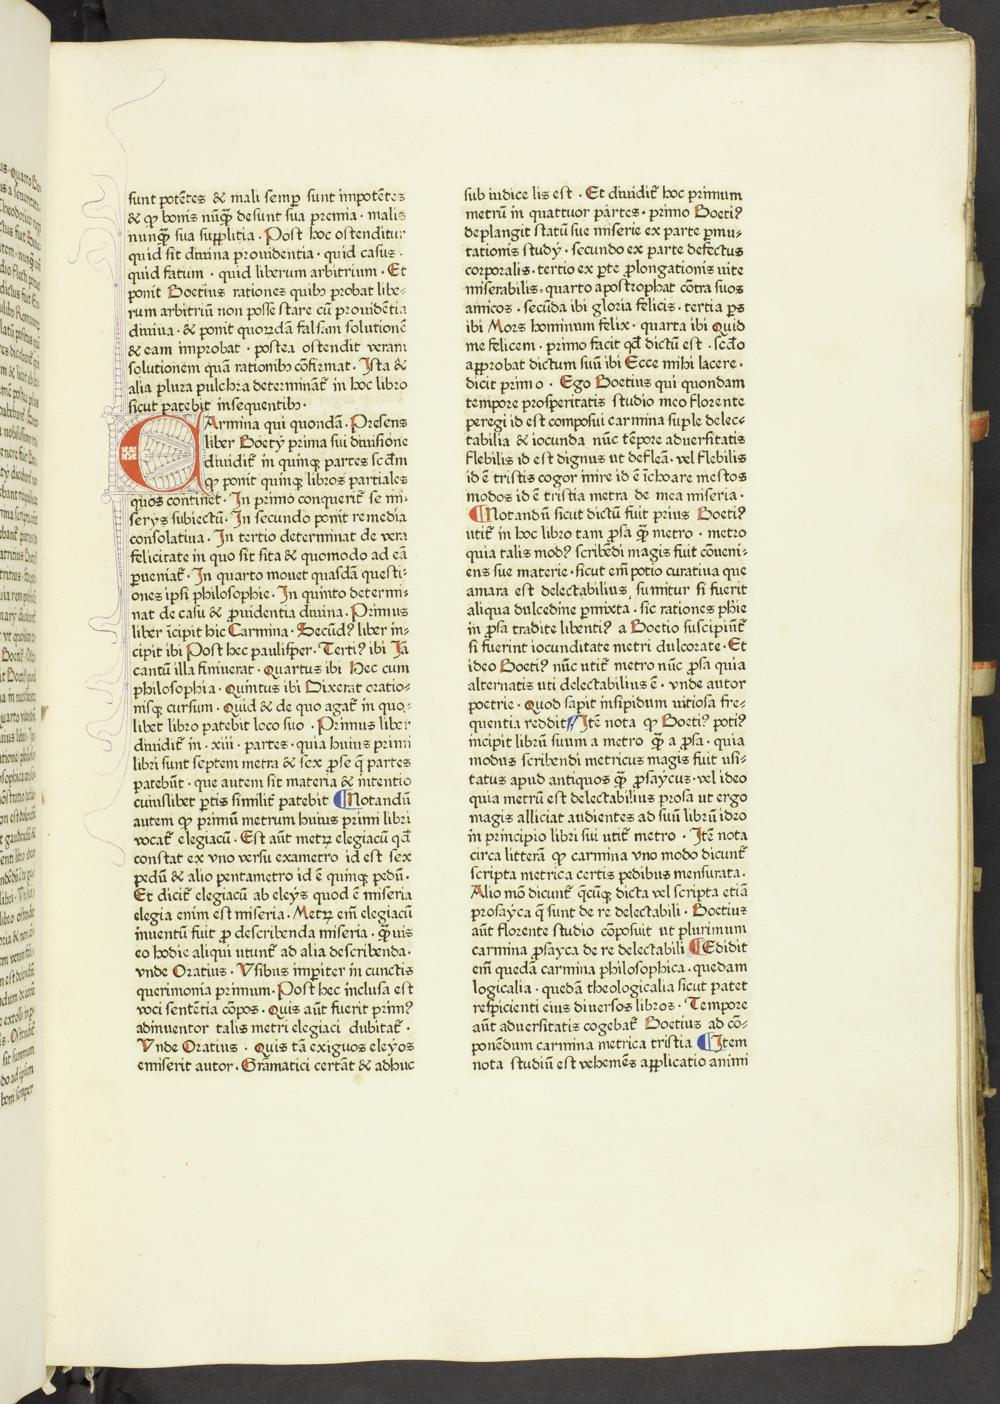 sunt potētes & mali semꝑ sunt impotētes
& ꝙ bonis nūq̄ȝ desunt sua premia · malis
nunq̄ȝ sua suꝑplitia · Post hoc ostenditur
quid sit diuina prouidentia · quid casus ·
quid fatum · quid liberum arbitrium · Et
ponit Boetius rationes quibꝰ probat libe⸗
rum arbitriū non posse stare cū prouidētia
diuina · & ponit quordā falsam solutionē
& eam improbat · postea ostendit veram
solutionem quā rationibꝰ cōfirmat · Ista &
alia plura pulchra determināt̄ in hoc libro
sicut patebit insequentibꝰ ·
CArmina qui quondā · Presens
liber Boetÿ prima sui diuisione
diuidit̄ in quinqȝ partes scd̄m
ꝙ ponit quinqȝ libros partiales
quos continet · In primo conquerit̄ se mi⸗
serÿs subiectū · In secundo ponit remedia
consolatiua · In tertio determinat de vera
felicitate in quo sit sita & quomodo ad eā
ꝑueniat̄ · In quarto mouet quasdā questi⸗
ones ipsi philosophie · In quinto determi⸗
nat de casu & ꝓuidentia diuina · Primus
liber īcipit hic Carmina · Secūdꝰ liber in⸗
cipit ibi Post hec paulisper · Tertiꝰ ibi Iā
cantū illa finiuerat · Quartus ibi Hec cum
philosophia · Quintus ibi Dixerat oratio⸗
nisqȝ cursum · Quid & de quo agat̄ in quo⸗
libet libro patebit loco suo · Primus liber
diuidit̄ in · xiii · partes · quia huius primi
libri sunt septem metra & sex ꝓse q̄ partes
patebūt · que autem sit materia & intentio
cuiuslibet ꝑtis similit̄ patebit ¶ Notandū
autem ꝙ primū metrum huius primi libri
vocat̄ elegiacū · Est aūt metꝝ elegiacū qd̄
constat ex vno versu exametro id est sex
pedū & alio pentametro id ē quinqȝ pedū ·
Et dicit̄ elegiacū ab eleys quod ē miseria
elegia enim est miseria · Metꝝ em̄ elegiacū
inuentū fuit ꝓ describenda miseria · q̄ȝuis
eo hodie aliqui utunt̄ ad alia describenda ·
vnde Oratius · Vsibus impiter in cunctis
querimonia primum · Post hec inclusa est
voci sentētia cōpos · Quis aūt fuerit primꝰ
adinuentor talis metri elegiaci dubitat̄ ·
Vnde Oratius · Quis tā exiguos eleyos
emiserit autor · Grāmatici certāt & adhuc
sub iudice lis est · Et diuidit̄ hoc primum
metrū in quattuor partes · primo Boetiꝰ
deplangit statū sue miserie ex parte ꝑmu⸗
tationis studÿ · secundo ex parte defectus
corporalis · tertio ex ꝑte ꝓlongationis uite
miserabilis · quarto apostrophat cōtra suos
amicos · secūda ibi gloria felicis · tertia ps
ibi Mors hominum felix · quarta ibi Quid
me felicem · primo facit qd̄ dictū est · scd̄o
aꝑprobat dictum suū ibi Ecce mihi lacere ·
dicit primo · Ego Boetius qui quondam
tempore prosperitatis studio meo florente
peregi id est composui carmina suple delec⸗
tabilia & iocunda nūc tēpore aduersitatis
flebilis id est dignus ut defleā · vel flebilis
id ē tristis cogor inire id ē ichoare mestos
modos id ē tristia metra de mea miseria ·
¶ Notandū sicut dictū fuit prius Boetiꝰ
utit̄ in hoc libro tam ꝓsa q̄ȝ metro · metro
quia talis modꝰ scribēdi magis fuit cōueni⸗
ens sue materie · sicut em̄ potio curatiua que
amara est delectabilius sumitur si fuerit
aliqua dulcedine ꝑmixta · sic rationes phie
in ꝓsa tradite libentiꝰ a Boetio suscipiūt̄
si fuerint iocunditate metri dulcorate · Et
ideo Boetiꝰ nūc utit̄ metro nūc ꝓsa quia
alternatis uti delectabilius ē · vnde autor
poetrie · Quod sapit insipidum uitiosa fre⸗
quentia reddit ¶ Itē nota ꝙ Boetiꝰ potiꝰ
incipit librū suum a metro q̄ȝ a ꝓsa · quia
modus scribendi metricus magis fuit usi⸗
tatus apud antiquos q̄ȝ ꝓsaycus · vel ideo
quia metrū est delectabilius prosa ut ergo
magis alliciat audientes ad suū librū ideo
in principio libri sui utit̄ metro · Itē nota
circa litterā ꝙ carmina vno modo dicunt̄
scripta metrica certis pedibus mensurata ·
Alio mō dicunt̄ q̄cūqȝ dicta vel scripta etiā
prosayca q̄ sunt de re delectabili · Boetius
aūt florente studio cōposuit ut plurimum
carmina ꝓsayca de re delectabili ¶ Edidit
em̄ quedā carmina philosophica · quedam
logicalia · quedā theologicalia sicut patet
respicienti eius diuersos libros · Tempore
aūt aduersitatis cogebat̄ Boetius ad cō⸗
ponēdum carmina metrica tristia ¶ Item
nota studiū est vehemēs aꝑplicatio animi